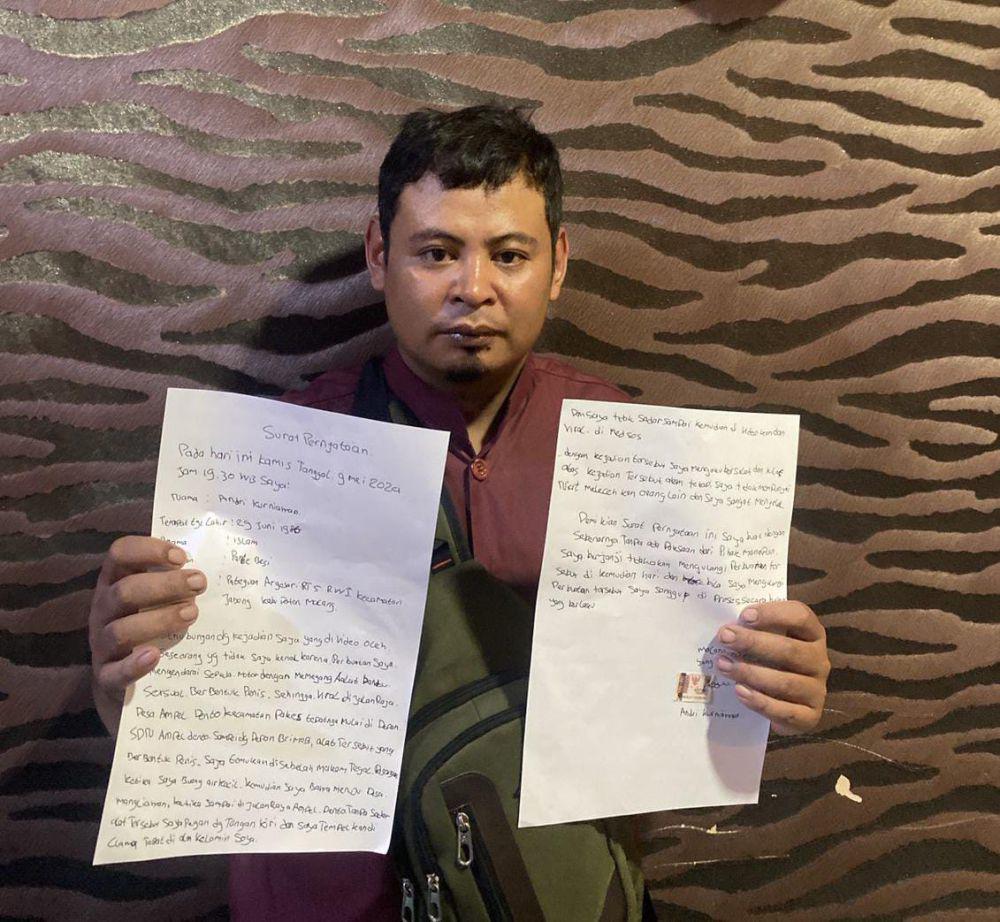 Surat Pernyataan
Pada hari ini kamis Tanggal, 9 mei 2024
Jam 19.30 WIB Saya:
Nama : Andri Kurniawan
Tempat Tgl Lahir : 29 Juni 1986
: Islam
: Pande Besi
: Pateguan Argosari RT 5 RW 1 kecamatan
Jabung kabupaten Malang.
dg kejadian Saya yang di video oleh
Seseorang yg tidak Saya kenal karena Perbuatan Saya.
Mengendarai Sepeda Motor dengan Memegang Alat Bantu
Seksual BerBentuk Penis. Sehingga. Viral di Jalan Raya.
Desa Ampel Dento kecamatan Pakes tepatnya Mulai di Depan
SDN Ampel dento Sampai dg Depan Brimob, alat Tersebut yang
BerBentuk Penis. Saya temukan di Sebelah Makam
ketika Saya Buang air kecil. kemudian Saya Bawa Menuju Desa.
Mangliawan, ketika Sampai di Jalan Raya Ampel. Dento Tanpa Sadar
alat Tersebut Saya Pegang dg Tangan kiri dan Saya Tempelkan di
Tepat di Kelamin Saya.
Dan Saya tidak Sadar Sampai kemudian di Videokan dan
Viral. di Medsos
dengan kejadian tersebut Saya Mengakui bersalah dan
atas kejadian Tersebut akan tetapi Saya tidak Mempunyai
Niat Melecehkan Orang Lain dan Saya Sangat Menyesal.
Demikian Surat Pernyataan ini Saya buat dengan
Sebenarnya Tanpa ada Paksaan dari Pihak Manapun.
Saya berjanji tidak akan Mengulangi Perbuatan ter
Sebut di kemudian hari dan bila Saya Mengulangi
Perbuatan tersebut Saya Sanggup di Proses Secara
yang berlaku
Malang
yang
Andri Kurniawan